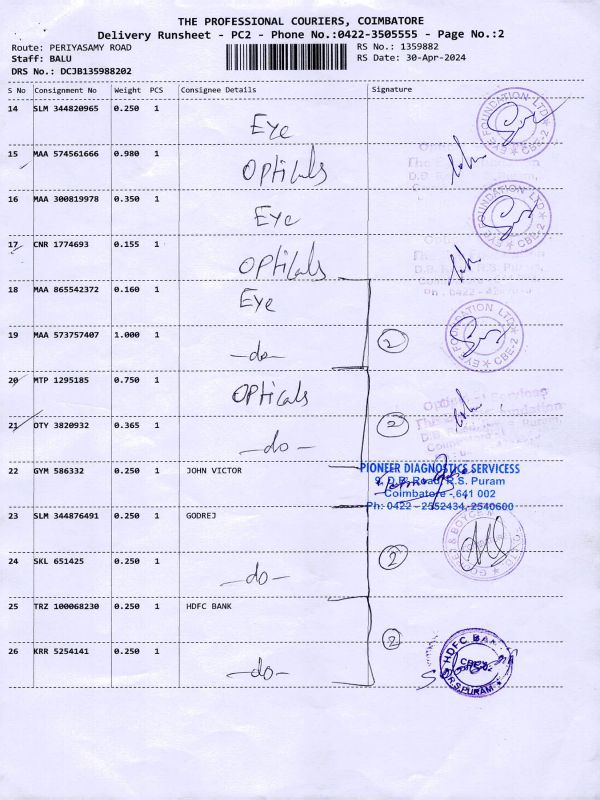 THE PROFESSIONAL COURIERS, COIMBATORE
Delivery Runsheet - PC2 - Phone No.:0422-3505555 - Page No.:2
Route: PERIYASAMY ROAD
Staff: BALU
DRS No.: DCJB135988202
RS No.: 1359882
RS Date: 30-Apr-2024
S No Consignment No Weight PCS Consignee Details Signature
14 SLM 344820965 0.250 1 Eye
EYE FOUNDATION LTD CBE-2
15 MAA 574561666 0.980 1 Opticals
16 MAA 300819978 0.350 1 Eye
EYE FOUNDATION LTD CBE-2
17 CNR 1774693 0.155 1 Opticals
18 MAA 865542372 0.160 1 Eye
19 MAA 573757407 1.000 1 -do- 2
EYE FOUNDATION LTD CBE-2
20 MTP 1295185 0.750 1 Opticals
21 OTY 3820932 0.365 1 -do- 2
22 GYM 586332 0.250 1 JOHN VICTOR
PIONEER DIAGNOSTICS SERVICESS
D.B. Road, R.S. Puram
Coimbatore - 641 002
Ph: 0422 - 2552434, 2540600
23 SLM 344876491 0.250 1 GODREJ
24 SKL 651425 0.250 1 -do- 2
25 TRZ 100068230 0.250 1 HDFC BANK
26 KRR 5254141 0.250 1 -do- 2
HDFC BANK
R.S.PURAM